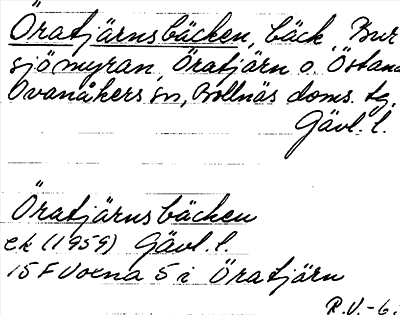 Öratjärnsbäcken, bäck Bur
sjömyran, Öratjärn o. Östana
Ovanåkers sn, Bollnäs doms. tg.
Gävl. l.
Öratjärnsbäcken
ek (1959) Gävl. l.
15F Voxna 5 i Öratjärn
R.V.-6.